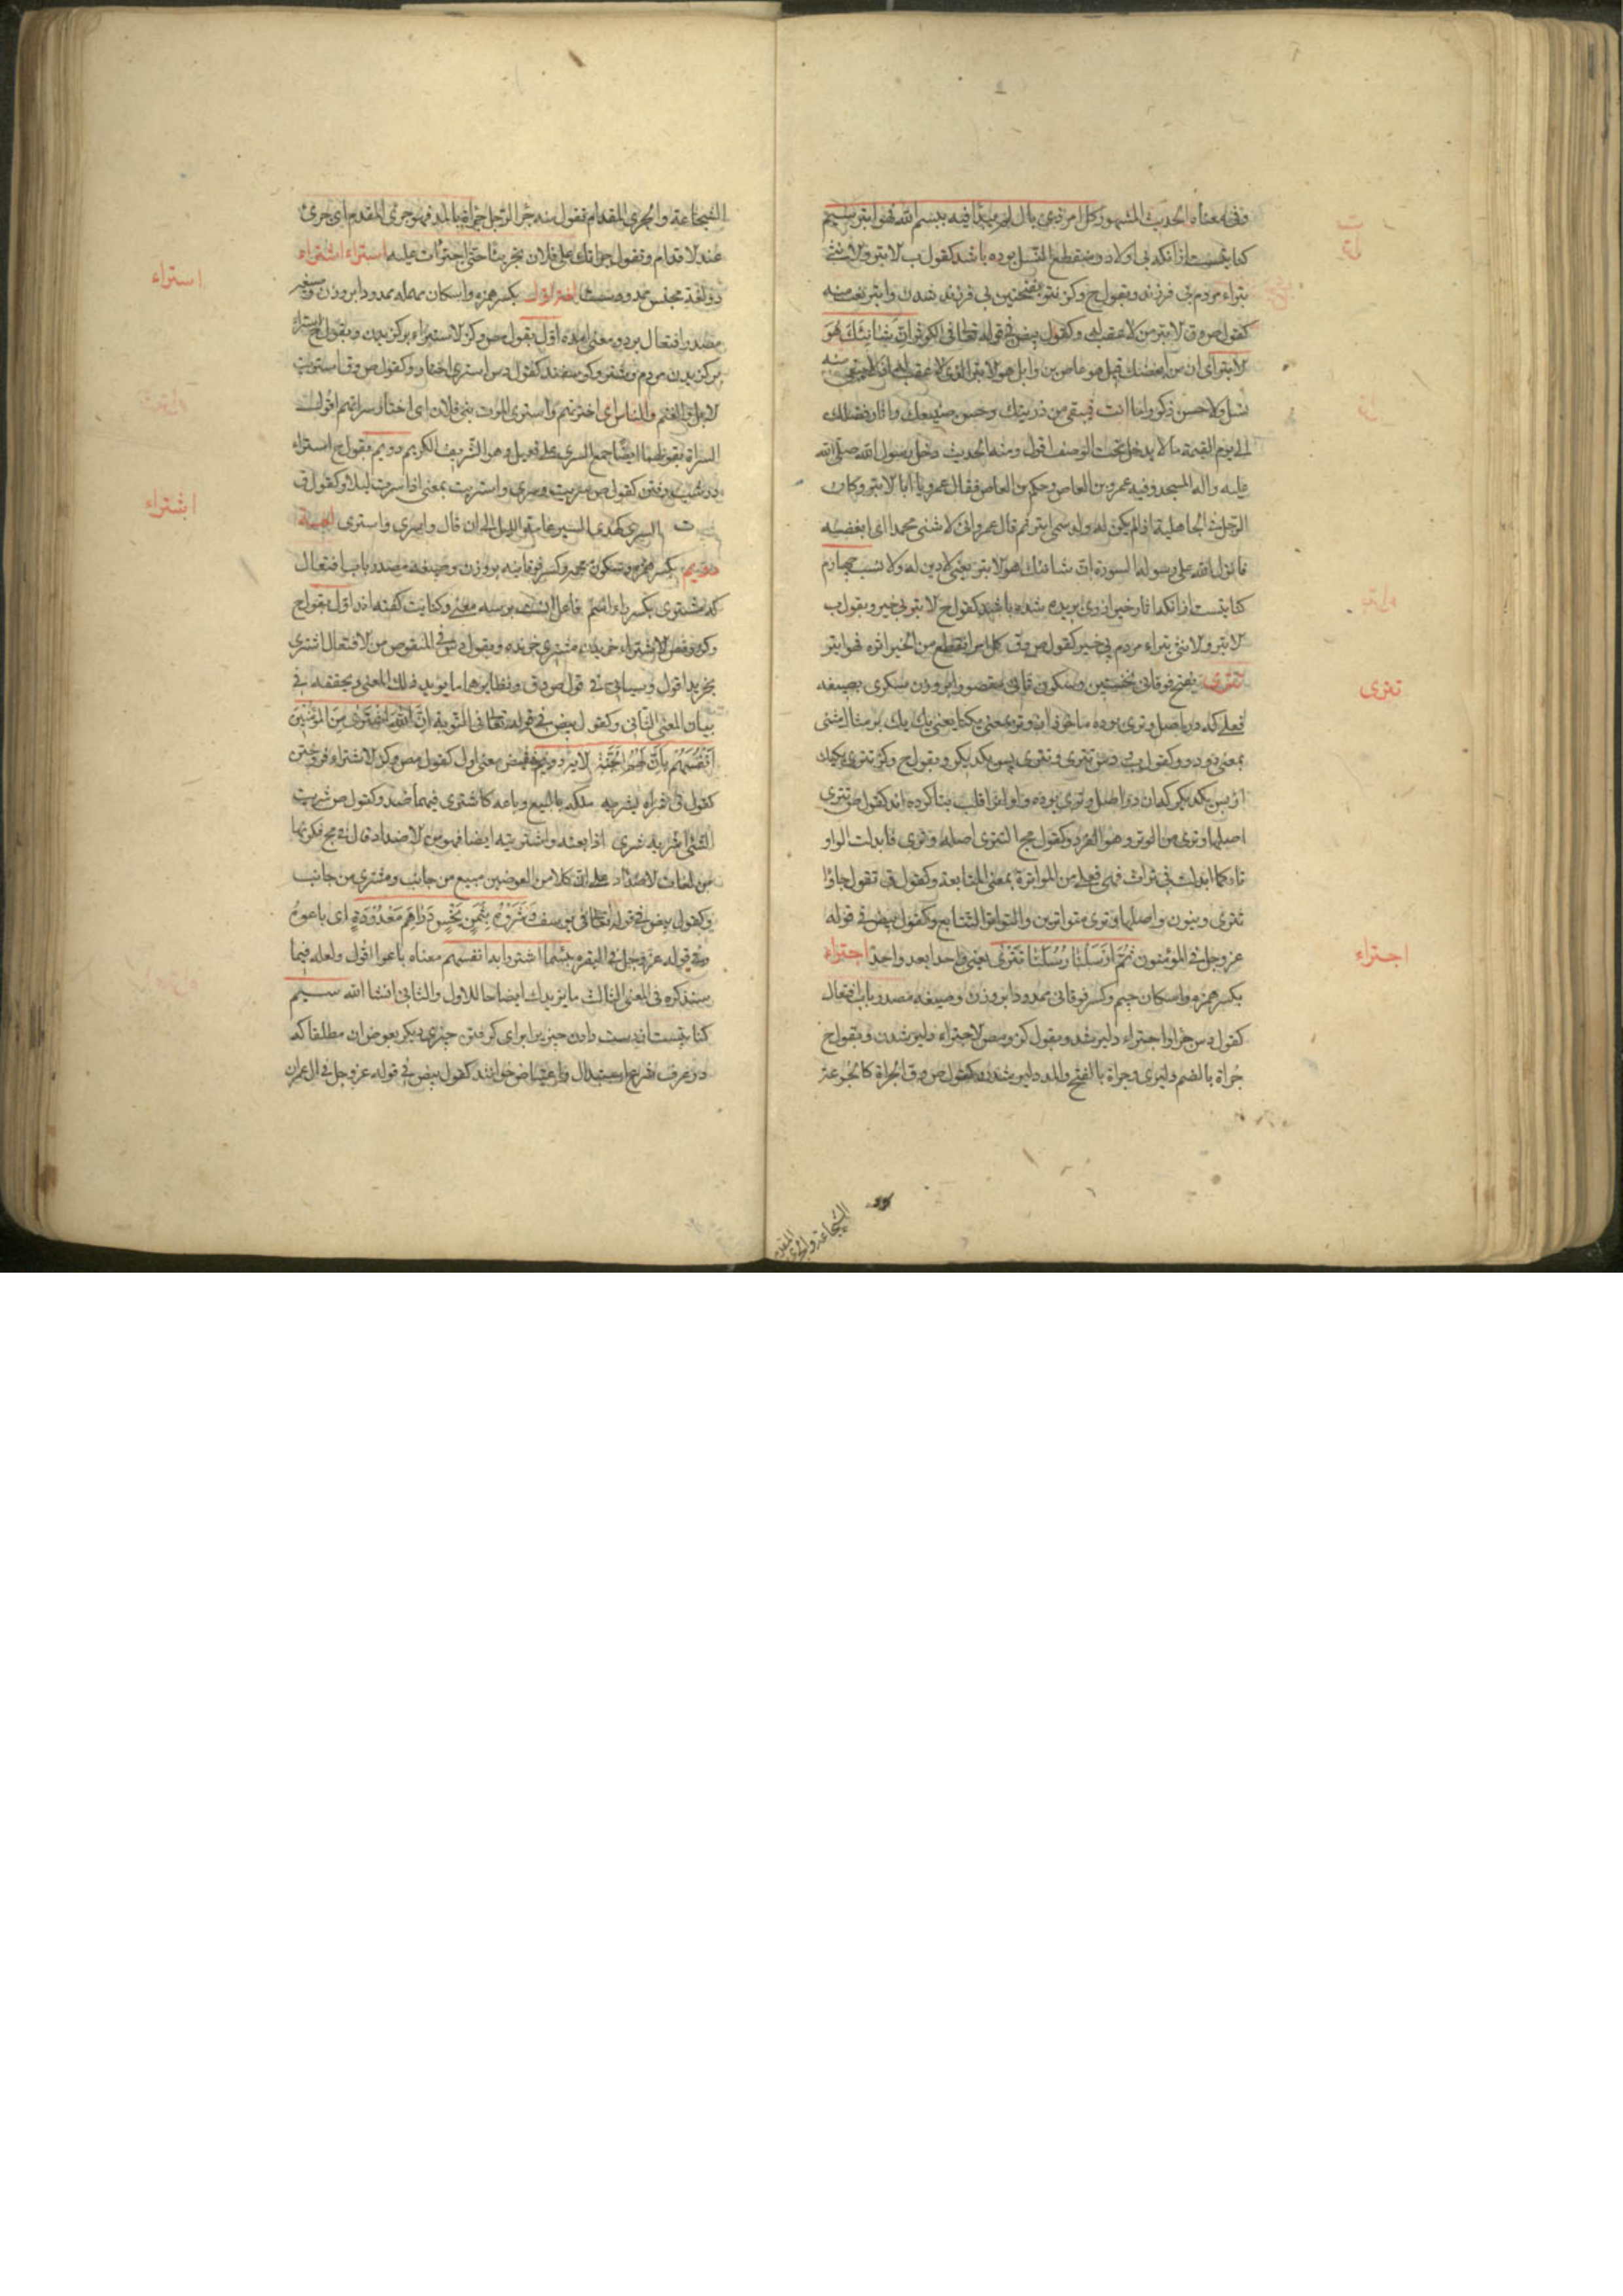 وفی معناه الحدیث المشهور کل امر ذی بال لم یبدأ فیه ببسم الله فهو ابتر سیم
کنایتست ازانکه بی اولاد و منقطع النسل بوده باشد کقول ب لابتر ولانثی
بتراء مردم بی فرزند وبقول ج وکز بتر بفتحتین بی فرزند شدن وابتر نعت منه
کقول ص وق لابتر من لاعقب له وکقول بیض فی قوله تعالی فی الکوثر ان شانئك هو
لابتر ای ان من ابغضك
نسل ولا حسن ذکر واما انت فیبقی من ذریتك وحسن صیتك واثار فضلك
الی یوم القیمة ما لا یدخل تحت الوصف اقول ومنه الحدیث دخل رسول الله صلی الله
علیه واله المسجد وفیه عمرو بن العاص وحکم بن العاص فقال عمرو یا ابا لابتر وکان
الرجل فی الجاهلیة اذا لم یکن له ولد سمی ابتر ثم قال عمرو انی لاشنی محمدا ای ابغضه
فانزل الله علی رسوله السورة ان شانئك هو لابتر یعنی لا دین له ولا نسب چهارم
کنایتست ازانکه اثار خیر از وی بریده شده باشد کقول ج لابتر بی خیر وبقول ب
لابتر ولانثی بتراء مردم بی خیر کقول ص وق کل امر انقطع من الخیر اثره فهو ابتر
تتری بفتح فوقانی نخستین وسکون ثانی مقصورا بر وزن سکری بصیغه
فعلی که در اصل وتری بوده ماخوذ از وتر بمعنی یکتا یعنی یك یك بر مثال مثنی
بمعنی دو دو وکقول ب
از پس یکدیگر که ان در اصل وتری بوده واو انرا قلب بتا کرده اند کقول ص تتری
اصلها وتری من الوتر وهو الفرد وکقول مج التتری اصله وتری فابدلت الواو
تاء کما ابدلت فی تراث فهی فعلی من المواترة بمعنی المتابعة وکقول ق تقول جاؤا
تتری وینون واصلها وتری متواترین والتواتر التتابع وکقول بیض فی قوله
عز وجل فی المؤمنون ثم ارسلنا رسلنا تتری یعنی واحدا بعد واحد اجتراء
بکسر همزه واسکان جیم وکسر فوقانی ممدودا بر وزن وصیغه مصدر باب افتعال
کقول دس جرا واجتراء دلیر شد وبقول کز ومص لاجتراء دلیر شدن وبقول ج
جراة بالضم دلیری وجراة بالفتح والمد دلیر شدن وکقول ص وق الجراة کالجرعة
الشجاعة والجری المقدام
تتری
اجتراء
الشجاعة والجری المقدام فتقول منه جرا الرجل جراة بالمد فهو جری المقدم ای جری
عند لاقدام وتقول جراتك علی فلان تجریئا حتی اجترات علیه استراء اشتراء
دو لغة مجنس اول بکسر همزه واسکان مهمله ممدودا بر وزن وصیغه
مصدر افتعال بر دو معنی امده اول بقول ص وکز لاستراء برگزیدن وبقول ج استراء
برگزیدن مردم وشتر وگوسفند کقول دس استری اختار وکقول ص وق استریت
لابل والغنم والناس ای اخترتهم واستری الموت بنی فلان ای اختار سراتهم اقول
السراة بفتح جمع السری علی فعیل وهو الشریف الکریم دویم بقول ج استراء
در شب رفتن کقول ص سریت وسری واستریت بمعنی اذا سرت لیلا وکقول ق
السری کهدی السیر عامة اللیل الی ان قال واسری واستری
دویم بکسر همزه وسکون معجمه وکسر فوقانیه بر وزن وصیغه مصدر باب افتعال
که مشتری بکسر راء اسم فاعل انست بر سه معنی وکنایت گفته اند اول بقول ج
وکز ومص لاشتراء خریدن مشتری خرنده وبقول دس فی المنقوص من لافتعال اشتری
بخرید اقول وسیاتی فی قول ص وق ونظایرهما ما یؤید ذلك المعنی ویحققه فی
بیان المعنی الثانی وکقول بیض فی قوله تعالی فی التوبة ان الله اشتری من المؤمنین
انفسهم بان لهم الجنة لایة دویم ضد معنی اول کقول مص وکز لاشتراء فروختن
کقول ق شراه یشریه ملکه بالبیع وباعه کاشتری فیهما ضد وکقول ص شریت
الشئ اشریه شری اذا بعته واشتریته ایضا فهو من لاضداد قال فی مج فکونها
من لغات لاضداد علی ان کلا من العوضین مبیع من جانب ومشتری من جانب
وکقول بیض فی قوله تعالی فی یوسف وشروه بثمن بخس دراهم معدودة ای باعوه
وفی قوله عز وجل فی البقره بئسما اشتروا به انفسهم معناه باعوا اقول ولعله فیما
سنذکره فی المعنی الثالث ما یزیدك ایضاحا للاول والثانی انشا الله سیم
کنایتست از دست دادن چیزی برای گرفتن چیزی دیگر بعوض ان مطلقا که
در عرف
استراء
اشتراء